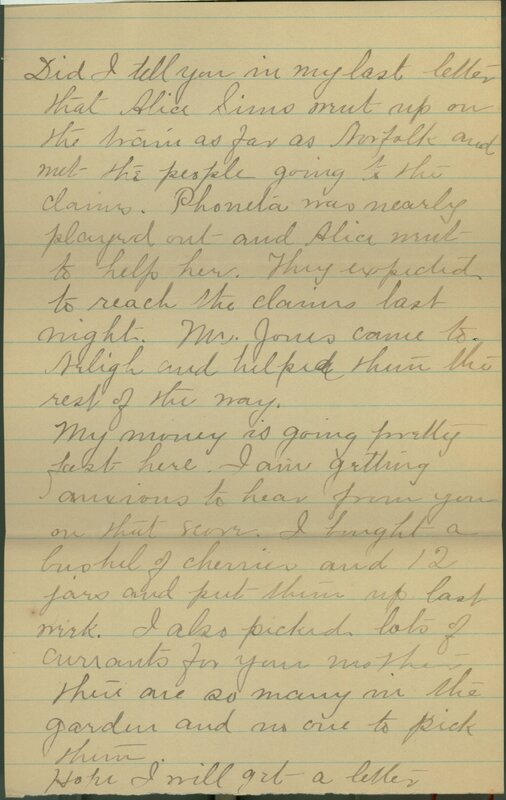 Did I tell you in my last letter
that Alice Sims went up on
the train as far as Norfolk and
met the people going to the
claims. Phoneta was nearly
played out and Alice went
to help her. They expected
to reach the claims last
night. Mr. Jones came to
Neligh and helped them the
rest of the way.
My money is going pretty
fast here. I am getting
anxious to hear from you
on that score. I bought a
bushel of cherries and 12
jars and put them up last
week. I also picked lots of
currants for your mother
there are so many in the
garden and no one to pick
them.
Hope I will get a letter